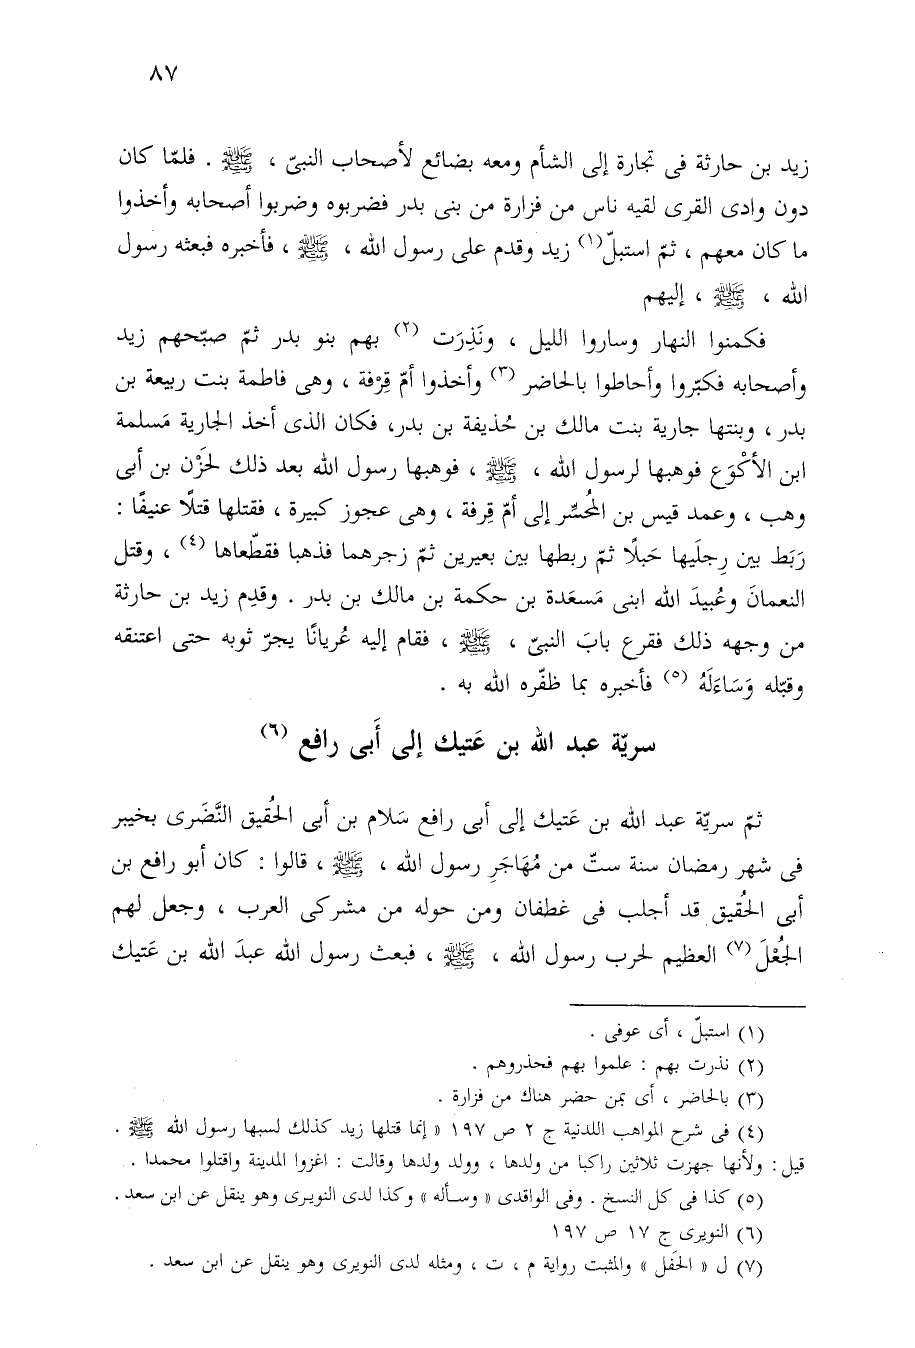 ٨٧
زيد بن حارثة فى تجارة إلى الشأم ومعه بضائع لأصحاب النبىّ ، ﷺ . فلمّا كان
دون وادى القرى لقيه ناس من فزارة من بنى بدر فضربوه وضربوا أصحابه وأخذوا
ما كان معهم ، ثمّ استبلّ(١) زيد وقدم على رسول الله ، ﷺ ، فأخبره فبعثه رسول
الله ، ﷺ ، إليهم
فكمنوا النهار وساروا الليل ، ونَذِرَت (٢) بهم بنو بدر ثمّ صبّحهم زيد
وأصحابه فكبّروا وأحاطوا بالحاضر (٣) وأخذوا أمّ قِرْفة ، وهى فاطمة بنت ربيعة بن
بدر ، وبنتها جارية بنت مالك بن حُذيفة بن بدر، فكان الذى أخذ الجارية مَسلمة
ابن الأكْوَع فوهبها لرسول الله ، ﷺ ، فوهبها رسول الله بعد ذلك لحَزْن بن أبى
وهب ، وعمد قيس بن المُحسِّر إلى أمّ قِرفة ، وهى عجوز كبيرة ، فقتلها قتلًا عنيفًا :
رَبَط بين رِجلَيها حَبلًا ثمّ ربطها بين بعيرين ثمّ زجرهما فذهبا فقطّعاها (٤) ، وقتل
النعمانَ وعُبيدَ الله ابنى مَسعَدة بن حكمة بن مالك بن بدر . وقدِم زيد بن حارثة
من وجهه ذلك فقرع بابَ النبىّ ، ﷺ ، فقام إليه عُريانًا يجرّ ثوبه حتى اعتنقه
وقبّله وَسَاءَلَهُ (٥) فأخبره بما ظفّره الله به .
سريّة عبد الله بن عَتيك إلى أَبى رافع (٦)
ثمّ سريّة عبد الله بن عَتيك إلى أبى رافع سَلام بن أبى الحُقيق النَّضَرى بخيبر
فى شهر رمضان سنة ستّ من مُهَاجَرِ رسول الله ، ﷺ ، قالوا : كان أبو رافع بن
أبى الحُقيق قد أجلب فى غطفان ومن حوله من مشركى العرب ، وجعل لهم
الجُعْلَ (٧) العظيم لحرب رسول الله ، ﷺ ، فبعث رسول الله عبدَ الله بن عَتيك
(١) استبلّ ، أى عوفى .
(٢) نذرت بهم : علموا بهم فحذروهم .
(٣) بالحاضر ، أى بمن حضر هناك من فزارة .
(٤) فى شرح المواهب اللدنية ج ٢ ص ١٩٧ « إنما قتلها زيد كذلك لسبها رسول الله ﷺ .
قيل : ولأنها جهزت ثلاثين راكبا من ولدها ، وولد ولدها وقالت : اغزوا المدينة واقتلوا محمدا .
(٥) كذا فى كل النسخ . وفى الواقدى « وسأله » وكذا لدى النويرى وهو ينقل عن ابن سعد .
(٦) النويرى ج ١٧ ص ١٩٧
(٧) ل « الحَفل » والمثبت رواية م ، ت ، ومثله لدى النويرى وهو ينقل عن ابن سعد .